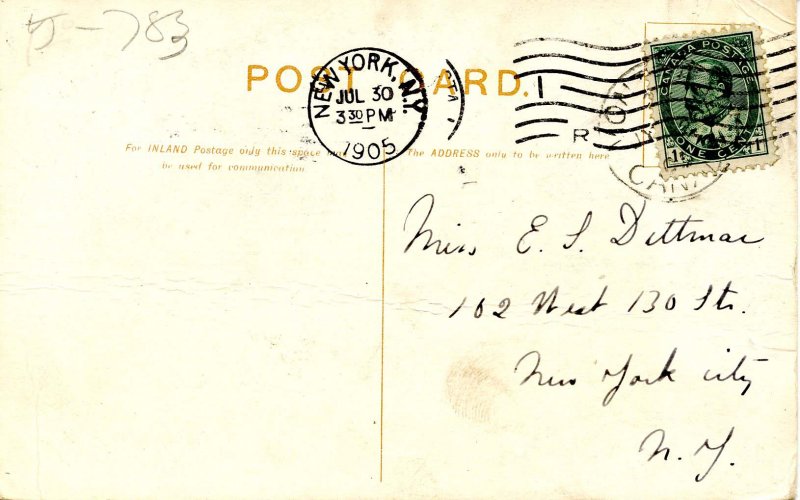 783
POST CARD.
NEW YORK, N.Y.
JUL 30
3 30 PM
1905
STA
1
R
CANADA POSTAGE
1 ONE CENT 1
CANADA
For INLAND Postage only this space may
be used for communication
The ADDRESS only to be written here
Miss E. S. Dittmar
102 West 130 Str.
New York city
N. Y.